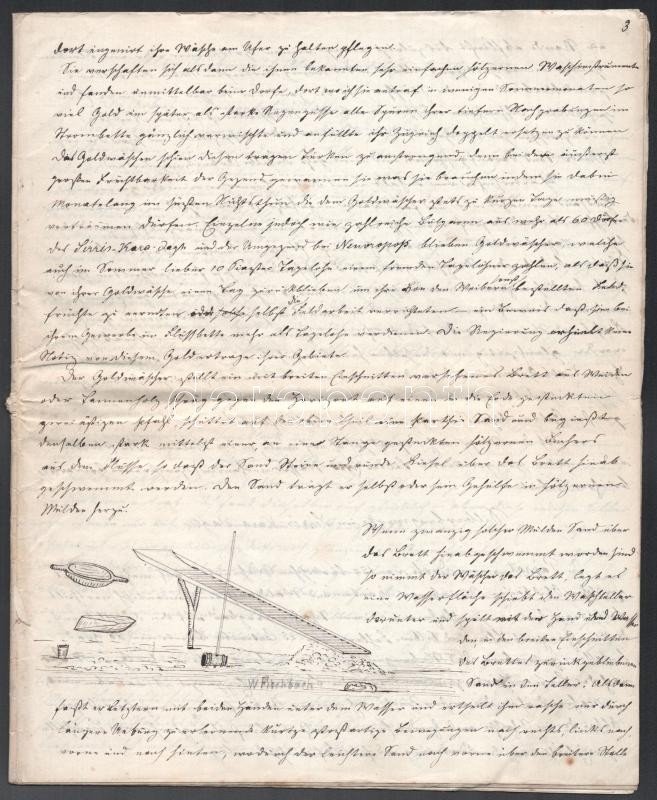 3
dort irgendwo ihre Wäsche am Ufer zu halten pflegen.
Sie verschafften sich alsdann die ihnen bekannten sehr einfachen hölzernen Waschinstrumente
und fanden unmittelbar beim Dorfe, dort wo ich sie antraf in wenigen Sommermonaten so
viel Gold im später als starke Regengüsse alle Spuren ihrer tiefen Nachgrabungen im
Strombette gänzlich verwischte und anfüllte ihr Zugvieh doppelt ersetzen zu können
Das Goldwaschen schien diesen trägen Türken zu anstrengend, denn bei der äußerst
großen Fruchtbarkeit der Gegend gewannen sie was sie brauchen indem sie dabei
Monatelang im süßen Nichtsthun die dem Goldwäscher stets zu kurzen Tage müßig
verträumen dürfen. Einzelne jedoch wie zahlreiche Bulgaren aus mehr als 60 Dörfern
des Sirris-Kara-Dagh und der Umgegend bei blieben Goldwäscher, welche
auch im Sommer lieber 10 Piaster Tagelohn einem fremden Tagelöhner zahlen, als daß sie
von ihrer Goldwäsche einen Tag zurückblieben um ihre von den Weibern bestellten Feld-
früchte zu ernten oder selbst die Feldarbeit verrichten. ein Beweis daß sie bei
ihrem Gewerbe im Flussbette mehr als Tagelohn verdienen. Die Regierung erhielt keine
Notiz von diesem Goldertrage ihrer Gebiete.
Der Goldwäscher stellt ein mit breiten Einschnitten versehenes Brett aus Weiden
oder Tannenholz
zweiästigen Pfahl, schüttet auf den obern Theil eine Parthie Sand und begießt
denselben stark mittelst eines an einer Stange gesteckten hölzernen Bechers
aus dem Flusse, so daß der Sand Steine und runde Kiesel über das Brett hinab
geschwemmt werden. Den Sand trägt er selbst oder sein Gehülfe in hölzernen
Mulden herzu.
Wenn zwanzig solcher Mulden Sand über
das Brett hinabgeschwemmt worden sind
so nimmt der Wäscher das Brett, legt es
eine Wasserfläche schiebt den Waschteller
darunter und spült mit der Hand und Wasser
den in den breiten Einschnitten
des Brettes zurückgebliebenen
Sand in den Teller; Alsdann
W Fischbach
faßt er Letztern mit beiden Händen unter dem Wasser und ertheilt ihm rasche nur durch
längere Uebung zu erlernende kurze stoßartige Bewegungen nach rechts, links, nach
vorne und nach hinten, wodurch der leichtere Sand nach vorne über den breiten Stelle